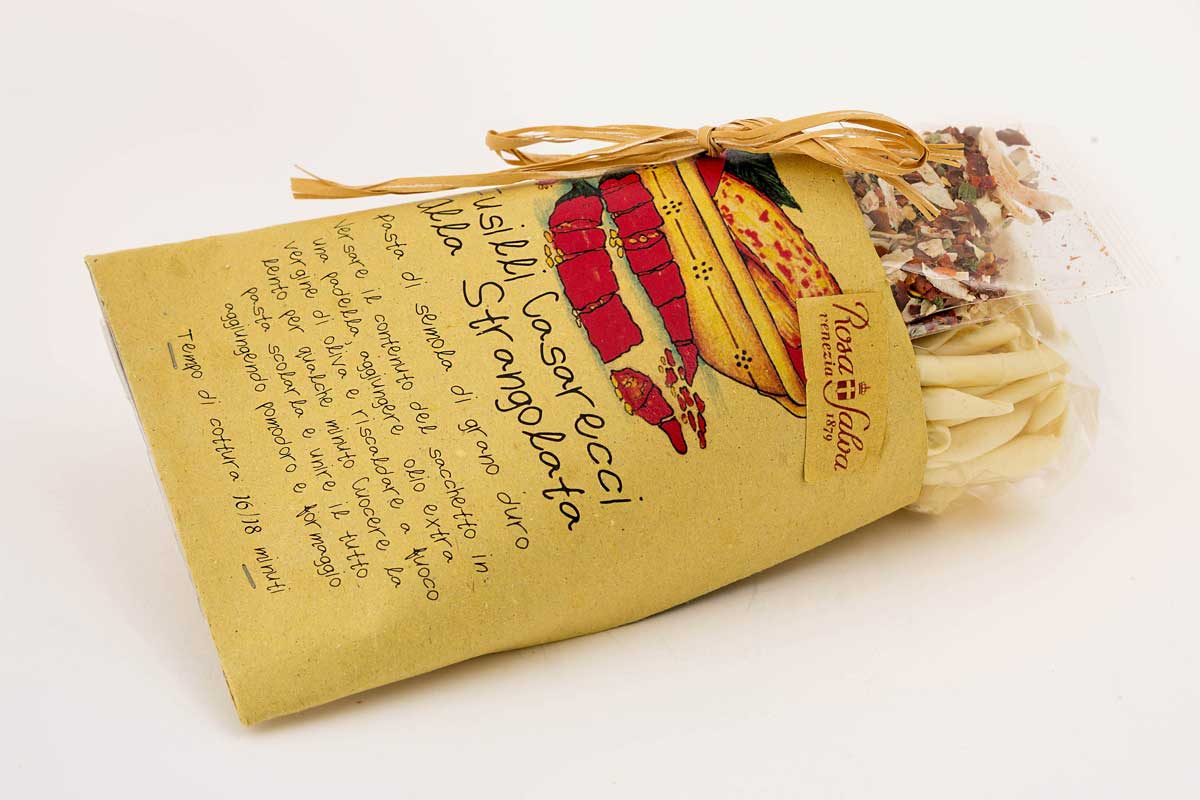 Fusilli Casarecci
alla Strangolata
Pasta di semola di grano duro
Versare il contenuto del sacchetto in-
una padella, aggiungere olio extra
vergine di oliva e riscaldare a fuoco
lento per qualche minuto Cuocere la
pasta scolarla e unire il tutto
aggiungendo pomodoro e formaggio
Tempo di cottura 16/18 minuti
Rosa Salva
venezia 1879